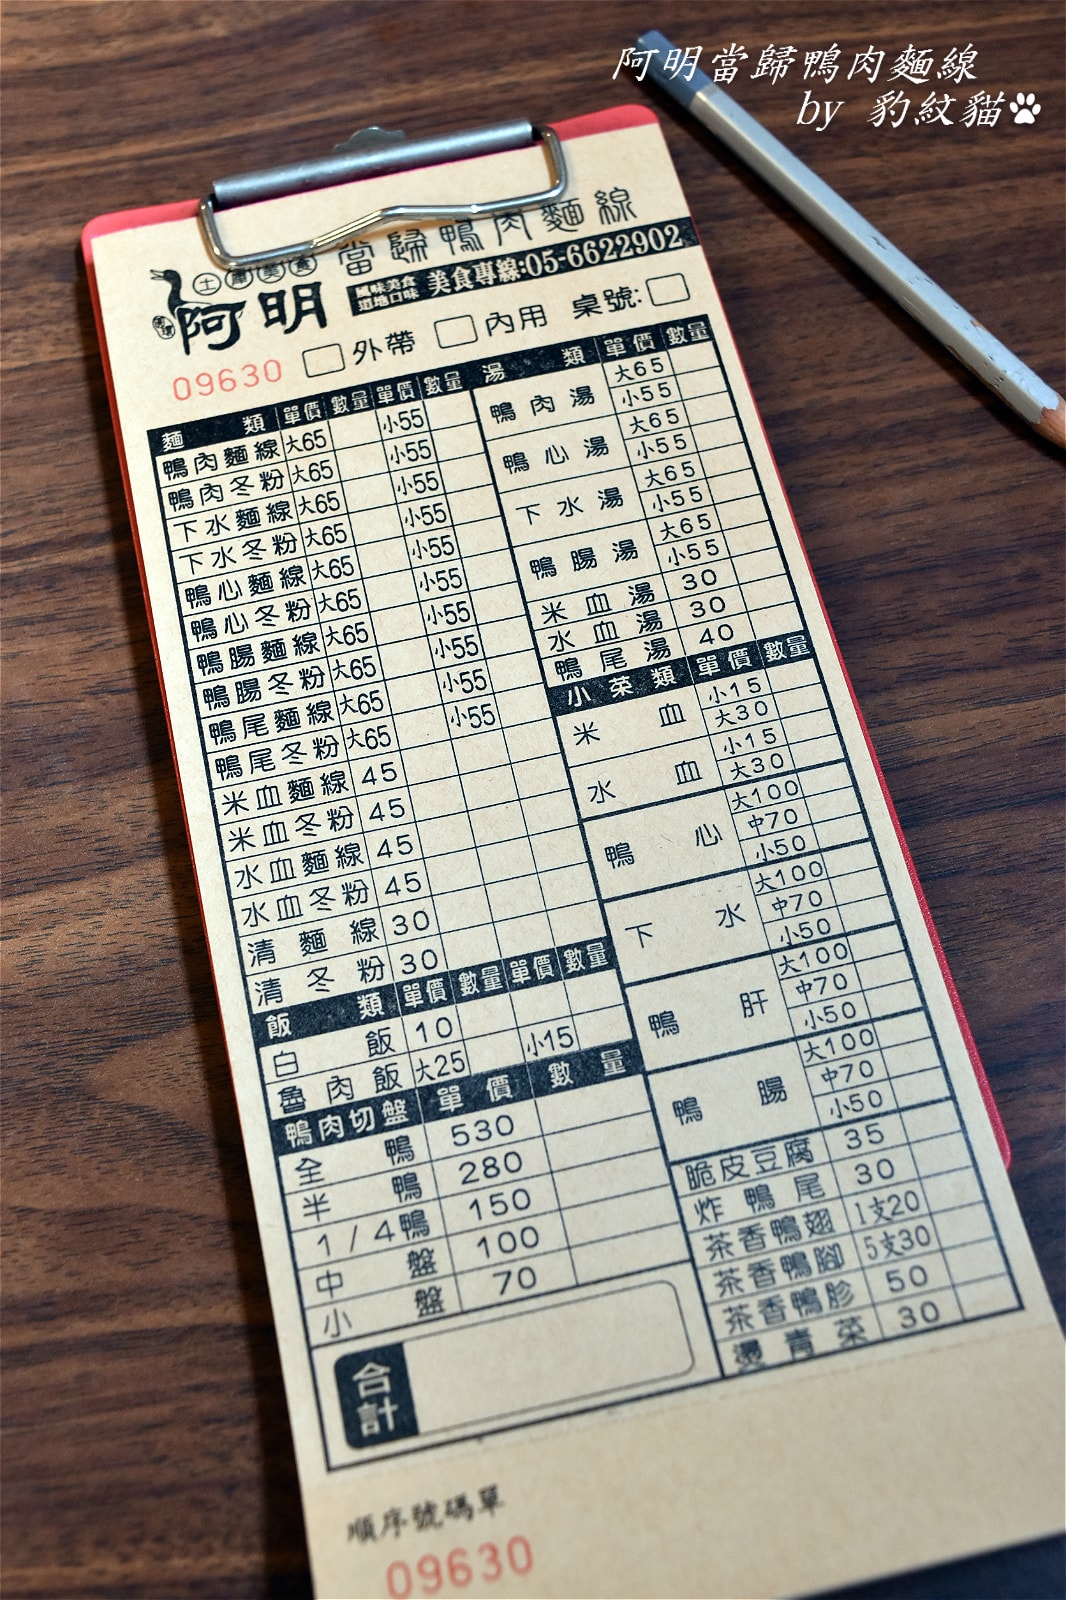 阿明當歸鴨肉麵線
by 豹紋貓
當歸鴨肉麵線
土庫美食
阿明
風味美食
道地口味
美食專線:05-6622902
09630
外帶 內用 桌號:
麵類 單價 數量 單價 數量
鴨肉麵線 大65 小55
鴨肉冬粉 大65 小55
下水麵線 大65 小55
下水冬粉 大65 小55
鴨心麵線 大65 小55
鴨心冬粉 大65 小55
鴨腸麵線 大65 小55
鴨腸冬粉 大65 小55
鴨尾麵線 大65 小55
鴨尾冬粉 大65 小55
米血麵線 45
米血冬粉 45
水血麵線 45
水血冬粉 45
清麵線 30
清冬粉 30
飯類 單價 數量 單價 數量
白飯 10
魯肉飯 大25 小15
鴨肉切盤 單價 數量
全鴨 530
半鴨 280
1/4鴨 150
中盤 100
小盤 70
合計
湯類 單價 數量
鴨肉湯 大65
小55
鴨心湯 大65
小55
下水湯 大65
小55
鴨腸湯 大65
小55
米血湯 30
水血湯 30
鴨尾湯 40
小菜類 單價 數量
米血 小15
大30
水血 小15
大30
鴨心 大100
中70
小50
下水 大100
中70
小50
鴨肝 大100
中70
小50
鴨腸 大100
中70
小50
脆皮豆腐 35
炸鴨尾 30
茶香鴨翅 1支20
茶香鴨腳 5支30
茶香鴨胗 50
燙青菜 30
順序號碼單
09630